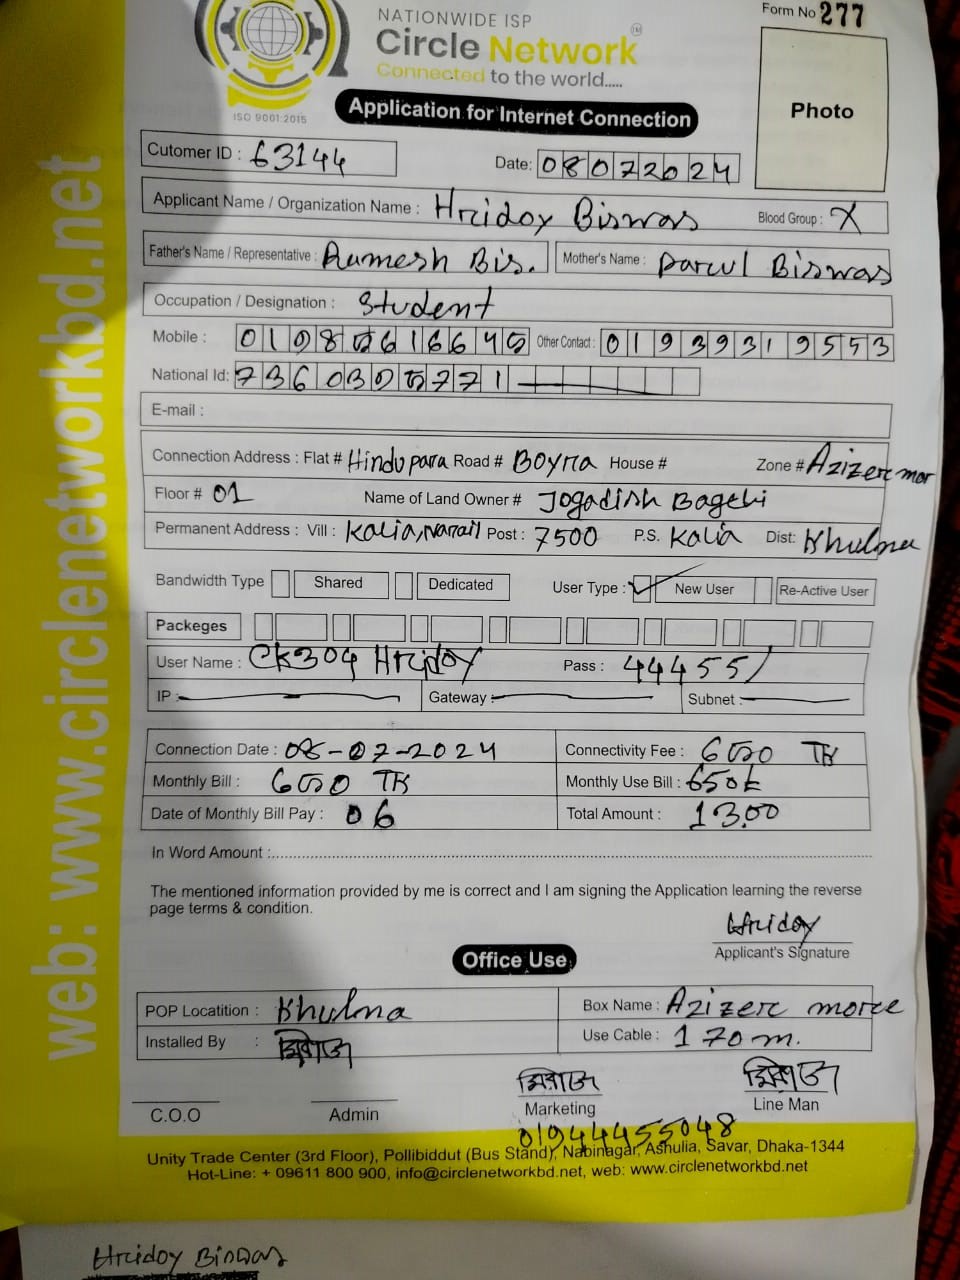 NATIONWIDE ISP
Circle Network
Connected to the world.....
ISO 9001:2015
Form No 277
Photo
Application for Internet Connection
Cutomer ID : 63144
Date: 08072024
Applicant Name / Organization Name : Hridoy Biswas Blood Group : X
Father's Name / Representative : Ramesh Bis. Mother's Name : Parul Biswas
Occupation / Designation : Student
Mobile : Other Contact : 01939319553
National Id:
E-mail :
Connection Address : Flat # Hindupara Road # Boyra House # Zone # Azizer mor
Floor # 01 Name of Land Owner # Jogadish Bagchi
Permanent Address : Vill : Kalia, Narail Post : 7500 P.S. Kalia Dist: Khulna
Bandwidth Type Shared Dedicated User Type : New User Re-Active User
Packeges
User Name : Hridoy Pass : 44455
IP : Gateway : Subnet :
Connection Date : 08-07-2024 Connectivity Fee : 650 TK
Monthly Bill : 650 TK Monthly Use Bill : 650
Date of Monthly Bill Pay : 06 Total Amount : 1300
In Word Amount :
The mentioned information provided by me is correct and I am signing the Application learning the reverse
page terms & condition.
Hridoy
Applicant's Signature
Office Use
POP Locatition : Khulna Box Name : Azizer more
Installed By : মিরাজ Use Cable : 170 m.
মিরাজ মিরাজ
C.O.O Admin Marketing Line Man
01944455048
Unity Trade Center (3rd Floor), Pollibiddut (Bus Stand), Nabinagar, Ashulia, Savar, Dhaka-1344
Hot-Line: + 09611 800 900, info@circlenetworkbd.net, web: www.circlenetworkbd.net
web: www.circlenetworkbd.net
Hridoy Biswas